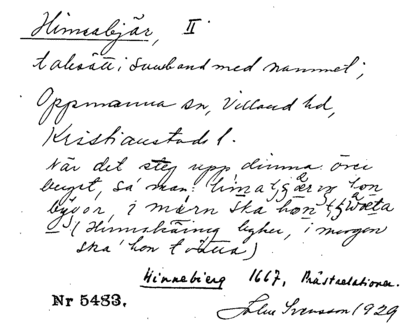 Himsabjär, II
talesätt i samband med namnet;
Oppmanna sn, Villand hd,
Kristianstads l.
När det steg upp dimma över
berget, sa man: hon
i mårn ska hon
(Himna lyher, i morgon
ska hon tvätta)
Hinnebierg 1667, Prästrelationer.
Nr 5483. John Svensson 1929